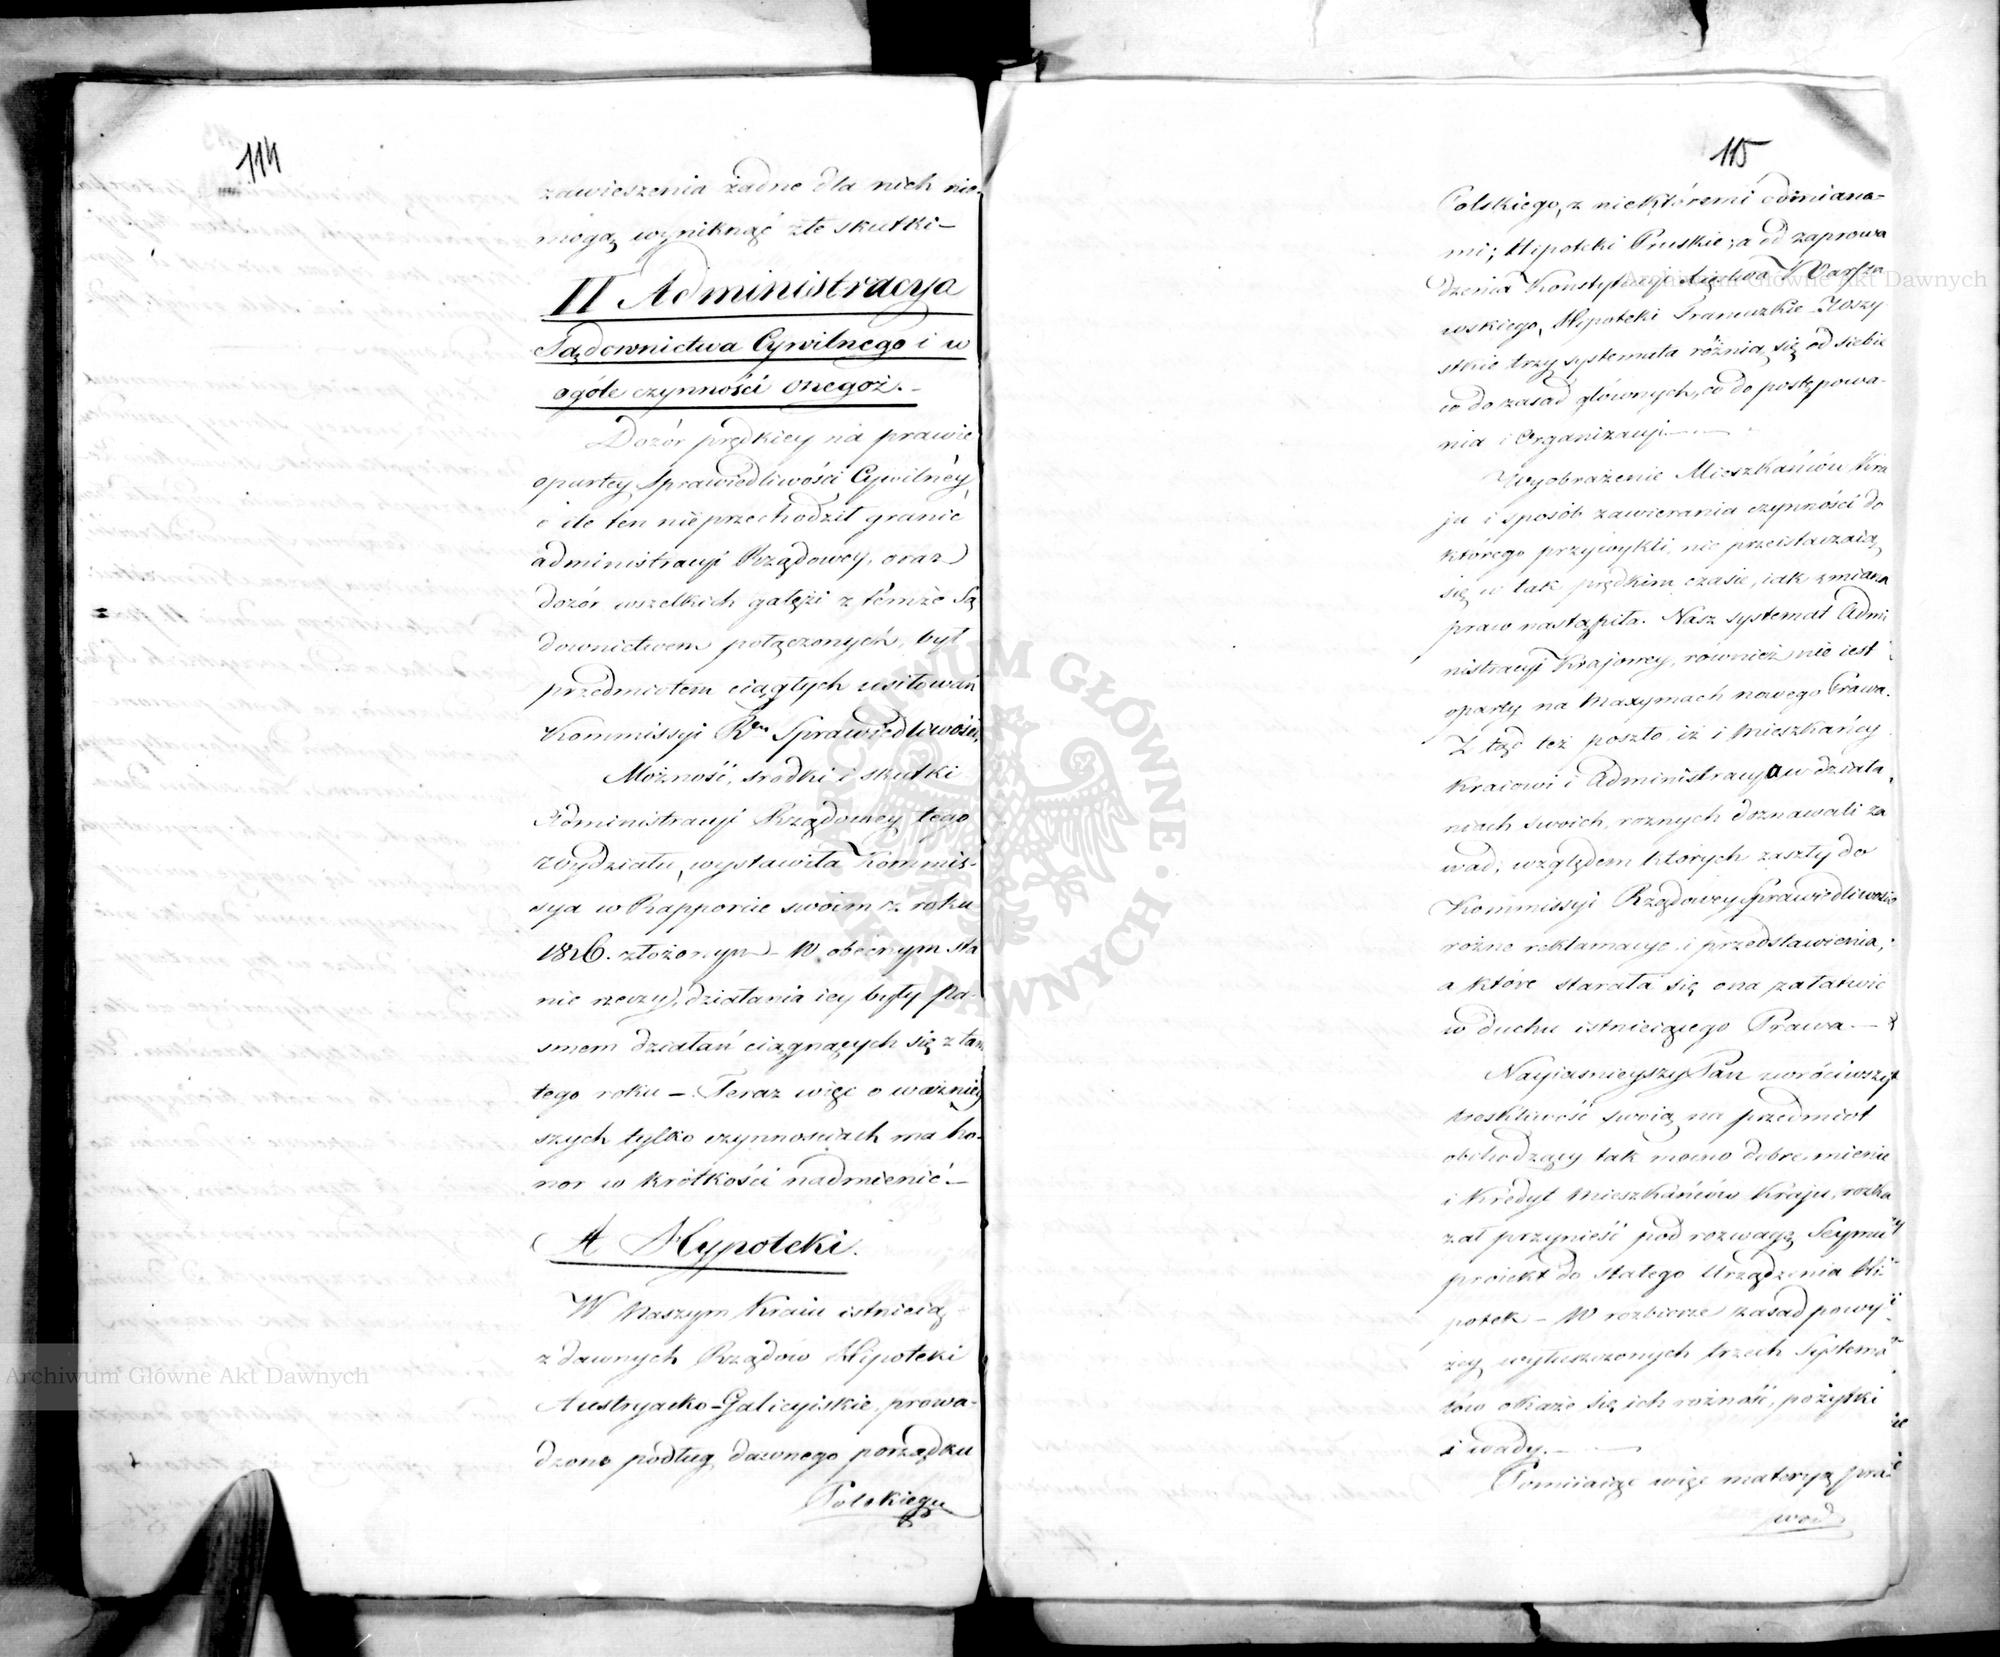 114
zawieszenia żadne dla nich nie-
mogą wyniknąć złe skutki —
II Administracya
Sądownictwa Cywilnego i w
ogóle czynności onegoż. —
Dozór prędkiey na prawie
opartey Sprawiedliwości Cywilnéy,
o ile ten nieprzechodził granic
administracyi Rządowey, oraz
dozór wszelkich gałęzi z témże Są
downictwem połączonych, był
przedmiotem ciągłych usiłowań
Kommissyi Rz. Sprawiedliwości.
Możność, srodki i skutki
Administracyi Rządowey tego
Wydziału, wystawiła Kommis-
sya w Rapporcie swoim z roku
1816. złożonym — W obecnym sta
nie rzeczy, działania iey były pa-
smem działań ciągnących się z tam
tego roku — Teraz więc o ważniey
szych tylko czynnosciach ma ho-
nor w krótkości nadmienić. —
A Hypoteki.
W Naszym Kraiu istnieią
z dawnych Rządów Hipoteki
Austryacko-Galicyiskie, prowa-
dzone podług dawnego porządku
Polskiego
115
Polskiego, z niektóremi odmiana-
mi; Hipoteki Pruskie; a od zaprowa
dzenia Konstytucyi Xięstwa Warsza
wskiego, Hipoteki Francuzkie — Wszy
stkie trzy systemata różnią się od siebie
co do zasad głównych, co do postępowa-
nia i Organizacyi —
Wyobrażenie Mieszkańców Kra
ju i sposób zawierania czynności do
którego przywykli, nie przeistaczaią
się w tak prędkim czasie, iak zmiana
praw nastąpiła. Nasz systemat Admi
nistracyi Krajowey, również nie iest
oparty na Maxymach nowego Prawa.
Z tąd też poszło, iż i Mieszkańcy
Kraiowi i Administracya w działa
niach swoich, roznych doznawali za
wad, względem których zaszły do
Kommissyi Rządowey Sprawiedliwości
rożne reklamacye i przedstawienia,
a które starała się ona załatwić
w duchu istnieiącego Prawa. —
Nayiasnieyszy Pan zwróciwszy
troskliwość swoią na przedmiot
obchodzący tak mocno dobre mienie
i Kredyt Mieszkańców Kraju, rozka
zał przynieść pod rozwagę Seymu
proiekt do stałego Urządzenia Hi-
potek — W rozbiorze zasad powy-
żey wyłuszczonych trzech Systema
tów okaże się ich rożność, pożytki
i wady. —
Pomiiaiąc więc materyą pra-
wod
Archiwum Główne Akt Dawnych
Archiwum Główne Akt Dawnych
ARCHIWUM GŁÓWNE · AKT DAWNYCH ·